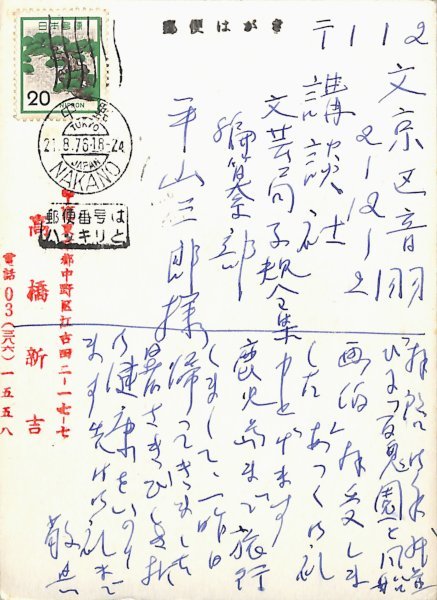 郵便はがき
〒112
文京区音羽
2-12-2
講談社
文芸局子規全集
編集部
平山三郎様
日本郵便
20
NIPPON
中野
TOKYO
21.8.76.18-24
JAPAN
NAKANO
郵便番号は
ハッキリと
東京都中野区江古田二-一七-七
高橋新吉
電話03(三八六)一五五八
拝啓
ひまつ百鬼園と
画伯 拝受しま
した あつく御礼
申上げます
鹿児島まで旅行
しまして、一昨日
帰ってきました
暑さきびしき折
御健康をいのり
ます 先は御礼まで
敬具